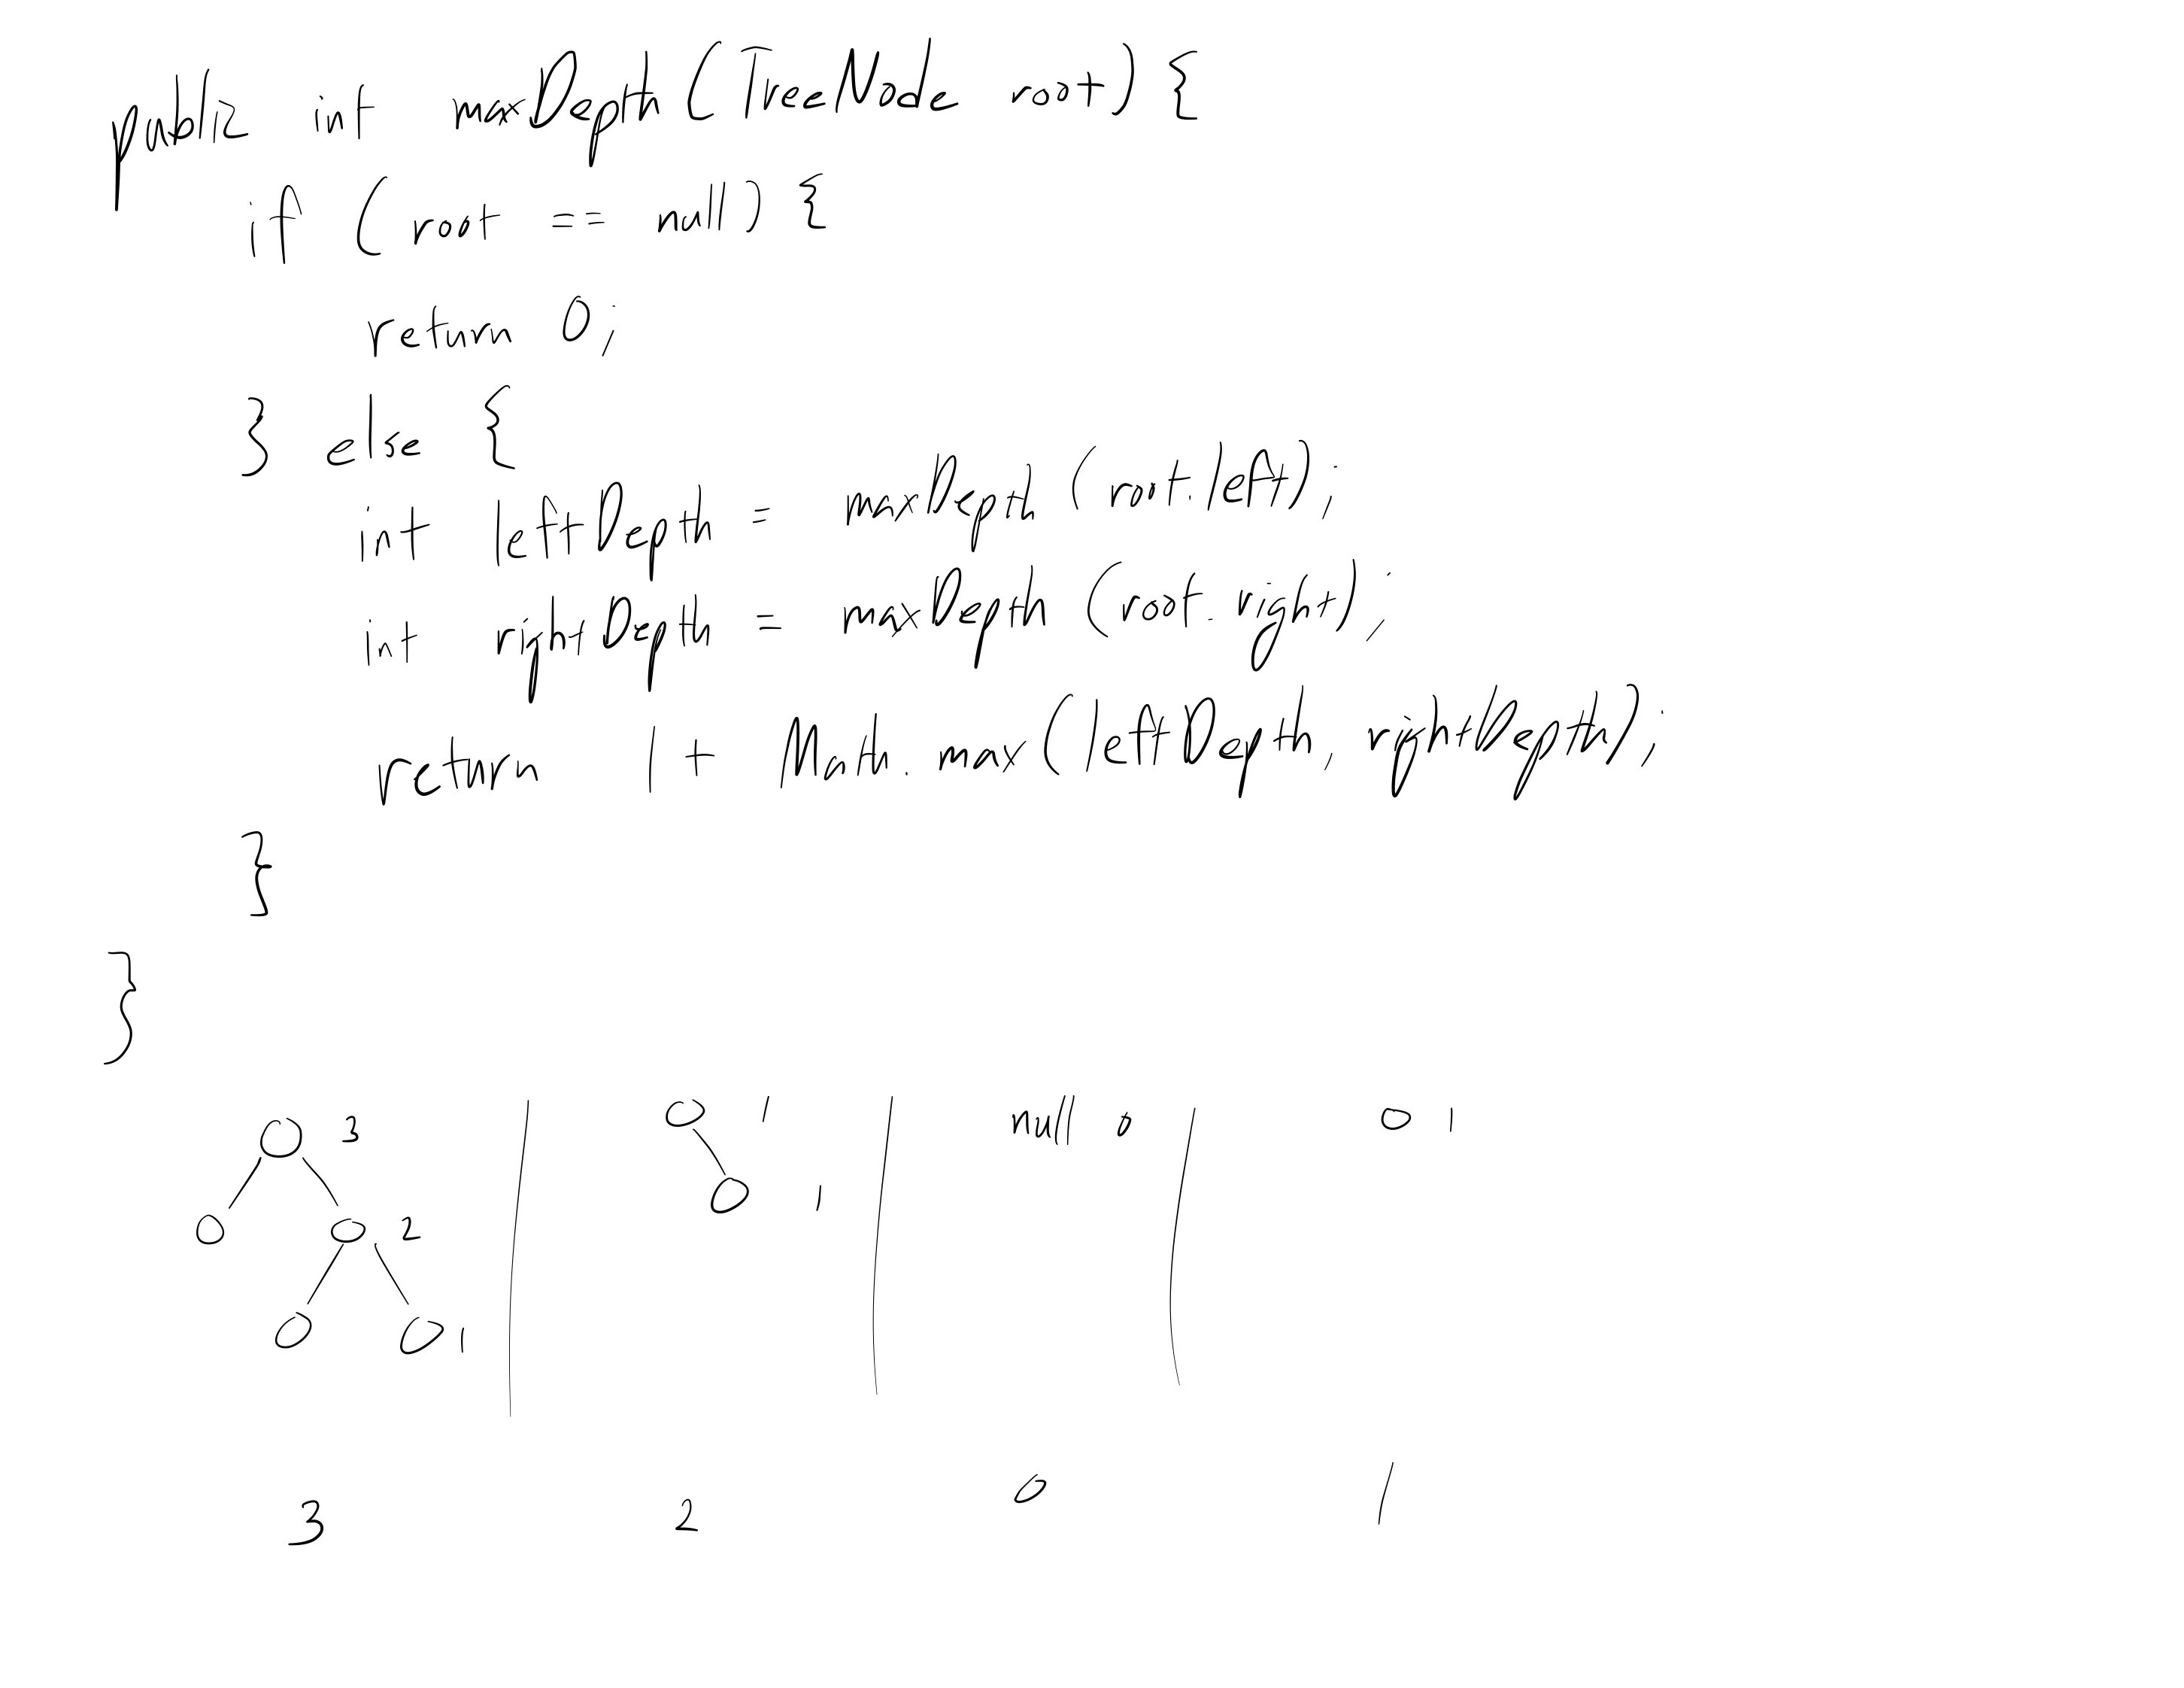 public int maxDepth(TreeNode root) {
if (root == null) {
return 0;
} else {
int leftDepth = maxDepth (root.left);
int rightDepth = maxDepth (root.right);
return 1 + Math.max(leftDepth, rightDepth);
}
}
3 1 null 0 1
2 1
1
3 2 0 1